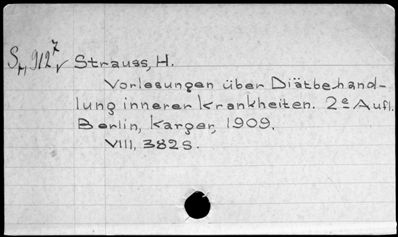 Strauss, H.
Vorlesungen über Diätbehand-
lung innerer Krankheiten. 2e Aufl.
Berlin, Karger, 1909.
VIII, 382 S.